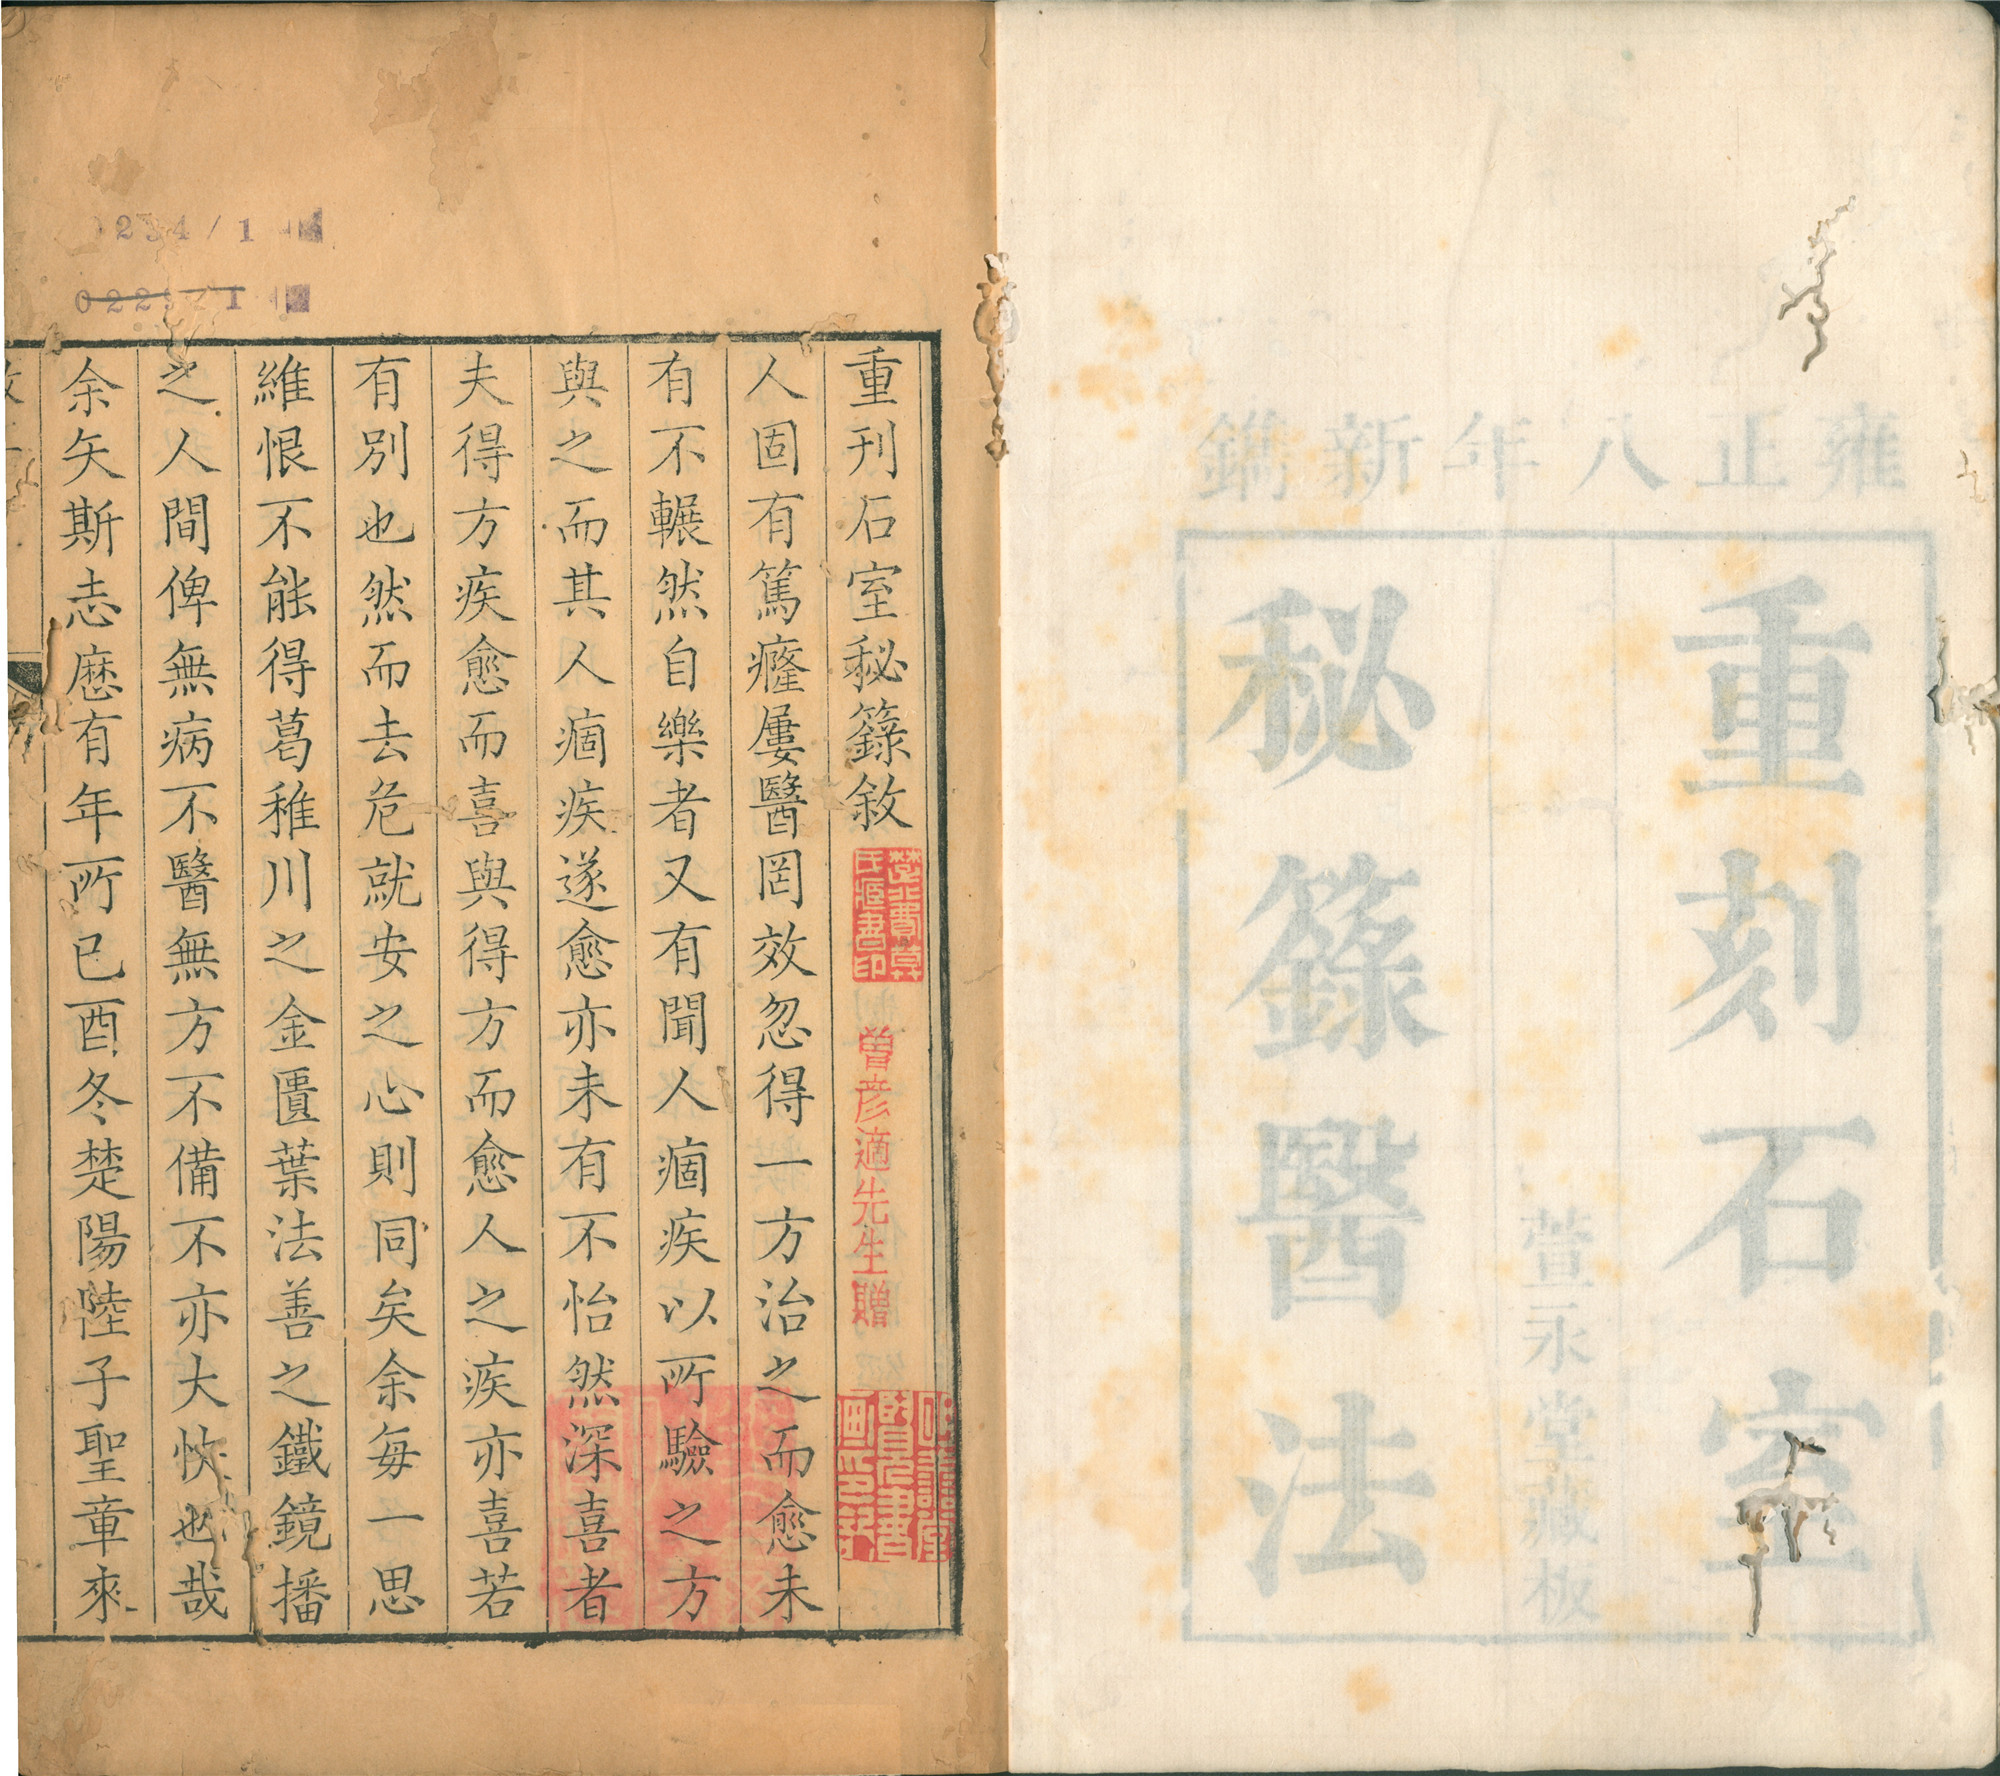 雍正八年新鐫
重刻石室
萱永堂藏板
秘籙醫法
重刊石室秘籙敘
曾彥適先生贈
人固有篤癃屢醫罔效忽得一方治之而愈未
有不輾然自樂者又有聞人痼疾以所驗之方
與之而其人痼疾遂愈亦未有不怡然深喜者
夫得方疾愈而喜與得方而愈人之疾亦喜若
有別也然而去危就安之心則同矣余每一思
維恨不能得葛稚川之金匱葉法善之鐵鏡播
之人間俾無病不醫無方不備不亦大快也哉
余矢斯志歷有年所己酉冬楚陽陸子聖章來